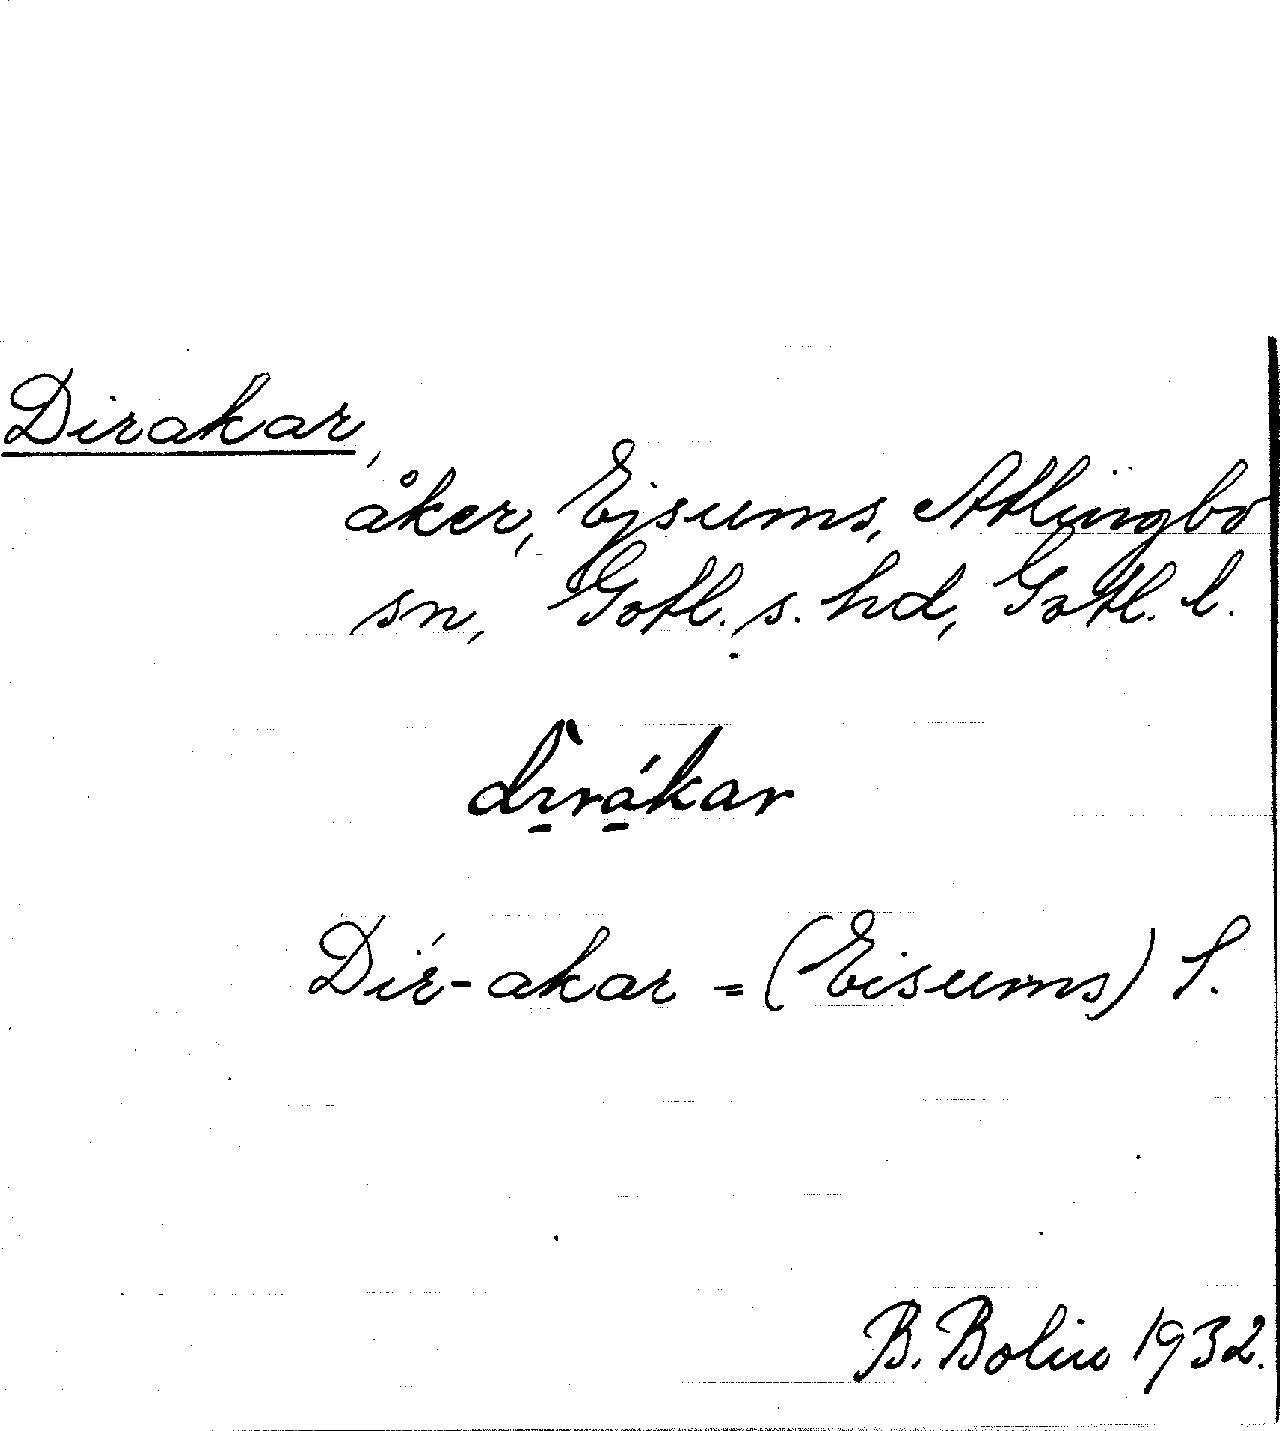 Dirakar,
åker, Ejsums, Atlingbo
sn, Gotl. s. hd, Gotl. l.
dı̀rákar
Dír-akar = (Eisums) S.
B. Bolin 1932.